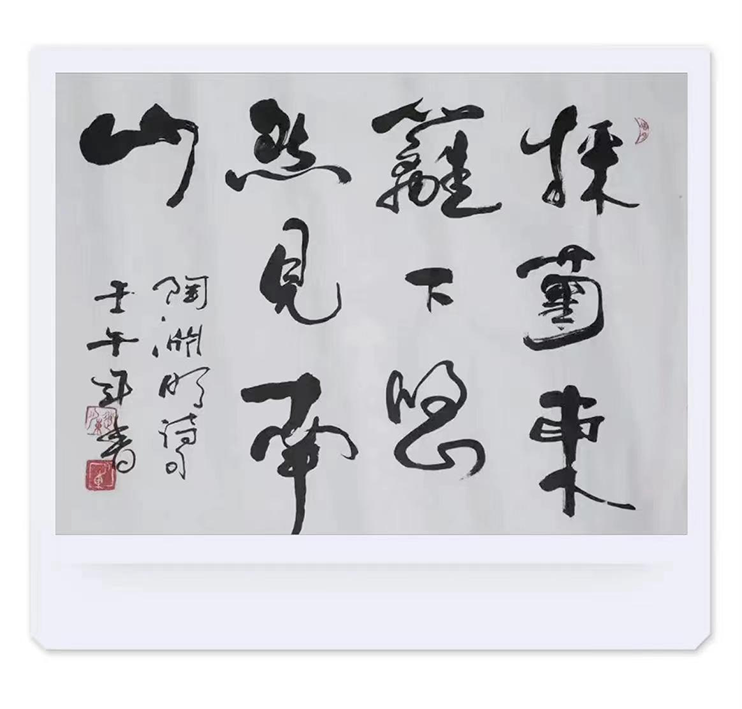 採菊東
籬下悠
然見南
山
陶淵明詩句
壬午年書